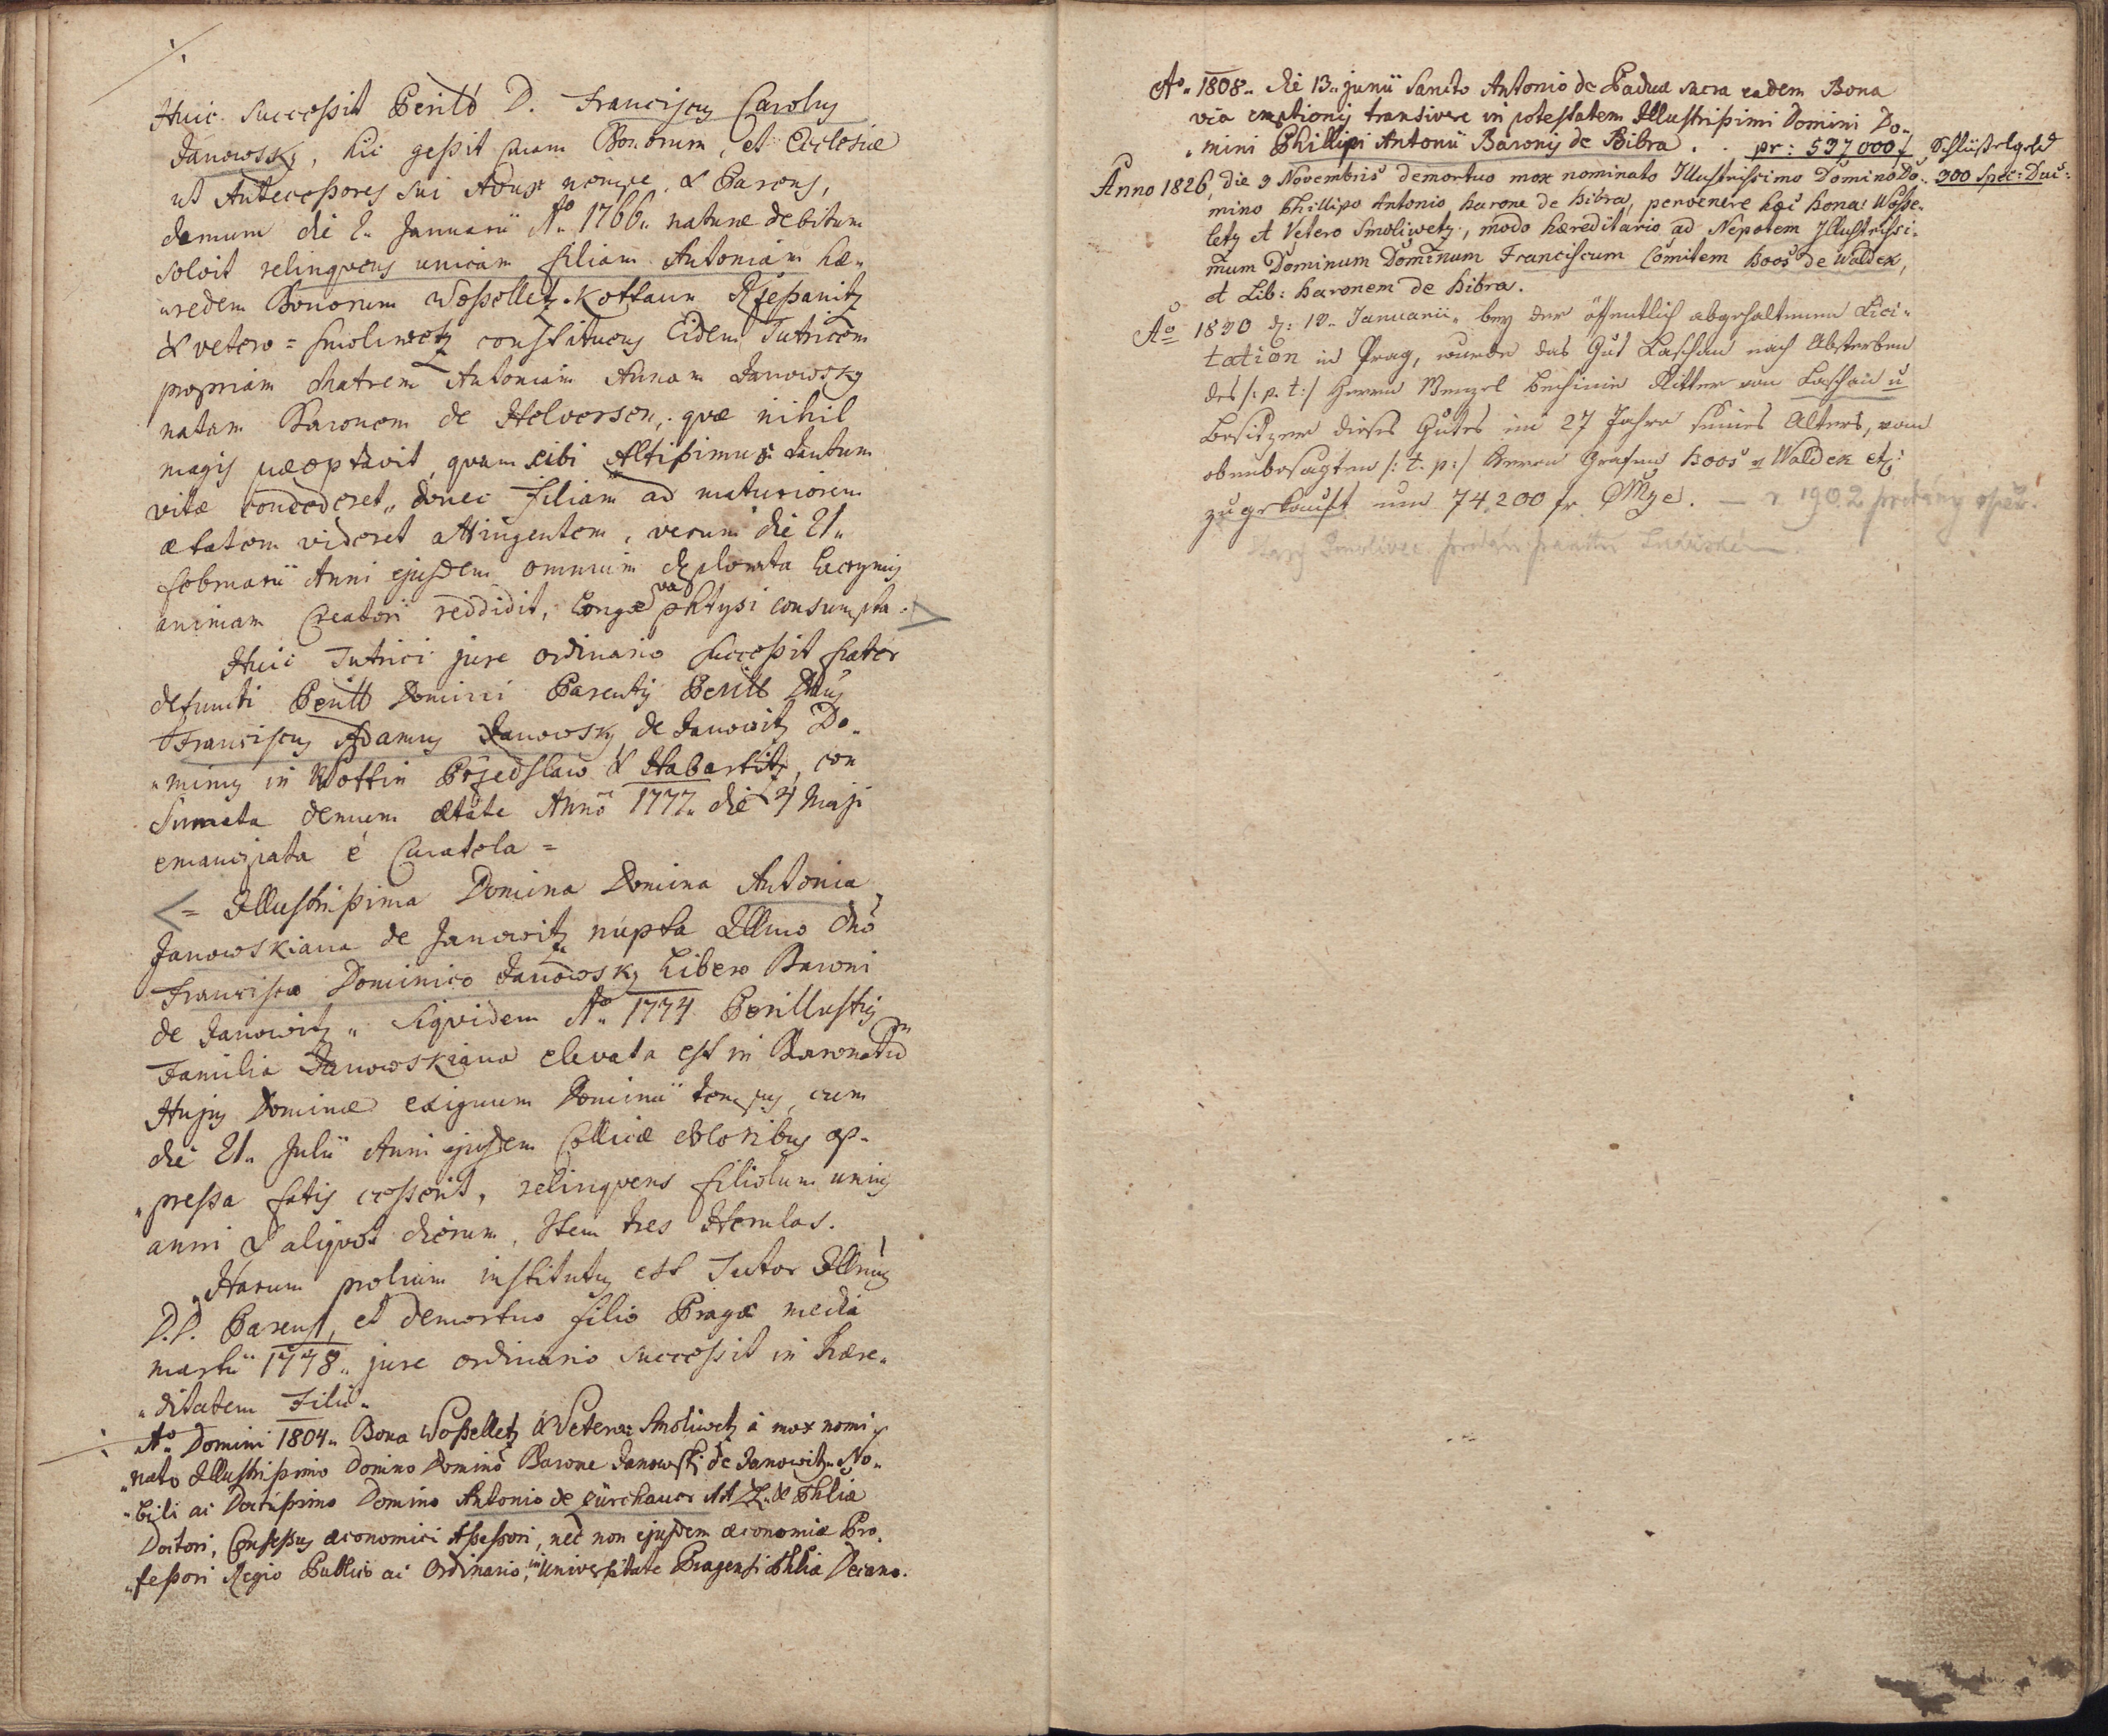 Huic successit Perillō D. Franciscus Carolus
Janowsky, hic gessit curam Bonorum, et Ecclesiæ
ut Antecessores sui Advoc nempe, & Parens,
demum die 2. Januarii Aō 1766. naturæ debitum
solvit relinqvens unicam filiam Antoniam hæ„
„redem Bonorum Wosselletz. Kottaun Rzepanitz
& vetero = Smoliwetz constituens Eidem Tutricem
propriam Matrem Antoniam Annam Janowsky
natam Baronem de Helversen, quæ nihil
magis præoptavit, quam sibi Altissimus tantum
vitæ concederet, donec filiam ad maturiorem
ætatem videret attingentem, verum die 21„
Februarii Anni ejusdem omnium deplorata lacrymis
animam Creatori reddidit, longævâ phtysi consumpta.
Huic Tutrici jure ordinario successit frater
defuncti Perill Domini Parentis Perill Dnus
Franciscus Adamus Janowsky de Janowitz Do„
„minus in Wottin Przedslaw & Habartitz, con
Sumata demum ætate Anno 1777. die 4 Maji
emancipata é Curatela =
= Illustrissima Domina Domina Antonia
Janowskiana de Janowitz nupta Illmo Dno
Francisco Dominico Janowsky Libero Baroni
de Janowitz„ siqvidem Aō 1774 Perillustris
Familia Janowskiana elevata est in Baronatum
Hujus Dominæ exiguum Dominii tempus, cum
die 21. Julii Anni ejusdem Collicæ doloribus op„
„pressa fatis cesserit, relinqvens filiolum unius
anni & aliqvot dierum. Item tres
Harum prolium institutus est Tutor Illmus
D.D. Parens, et demortuo filio Pragæ media
martii 1778„ jure ordinario successit in hære„
„ditatem Filii„
Aō Domini 1804„ Bona Wosselletz & Vetero= Smoliwetz à mox nomi
„nato Illustrissimo Domino Domino Barone Janowsky de Janowitz„ No„
„bili ac Doctissimo Domino Antonio de Zürchauer AA LL. & Phlia
Doctori, Consessus œconomici Assessori, nec non ejusdem œconomiæ Pro„
„fessori Regio Publico ac Ordinario, in Universitate Pragensi Phlia Decano.
Aō 1808„ die 13„ junii Sancto Antonio de Padua sacra eadem Bona
via emptionis transivere in potestatem Illustrissimi Domini Do„
„mini Phillipi Antonii Baronis de Bibra . . pr: 537000 f Schlüsselgeld
Anno 1826, die 9 Novembris demortuo mox nominato Illustrissimo Domino Do„ 300 Spec: Duc:
mino Phillipo Antonio barone de bibra, pervenere hæc bona: Wosse„
letz et Vetero Smoliwetz, modo hæreditario ad Nepotem Illustrissi„
mum Dominum Dominum Franciscum Comitem boos de Waldek,
et Lib: baronem de bibra.
Aō 1830 d: 12. Januarii„ bey der öffentlich abgehaltenen Lici„
tation in Prag, wurde das Gut Laschan nach Absterben
des /: p. t :/ Herrn Wenzel bechinie Ritter von Laschan u
besitzer dieses Gutes im 27 Jahre seines Alters, vom
obenbesagten /: t. p :/ Herrn Grafen boos v Waldek etz:
zugekauft um 74,200 fr CMze. — r 1902 prodány opět.
Starý Smolivec prodán